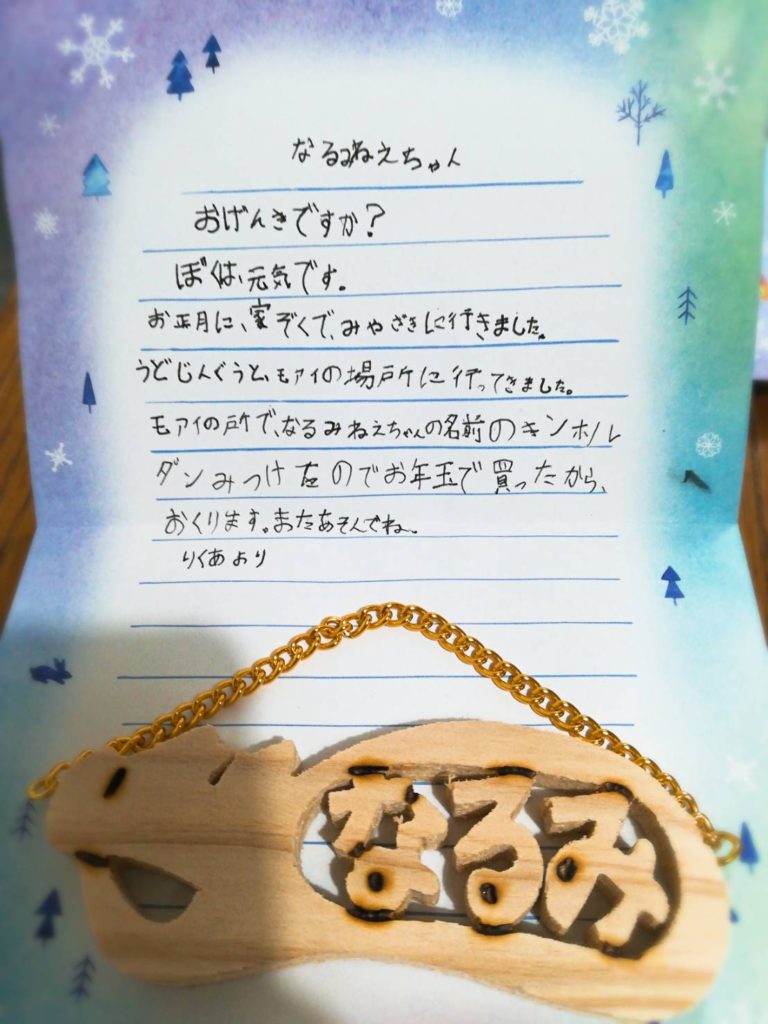 なるみねえちゃん
おげんきですか?
ぼくは、元気です。
お正月に、家ぞくで、みやざきに行きました。
うどじんぐうと、モアイの場所に行ってきました。
モアイの所で、なるみねえちゃんの名前のキンホル
ダンみつけたのでお年玉で買ったから、
おくります。またあそんでね。
りくあより
なるみ